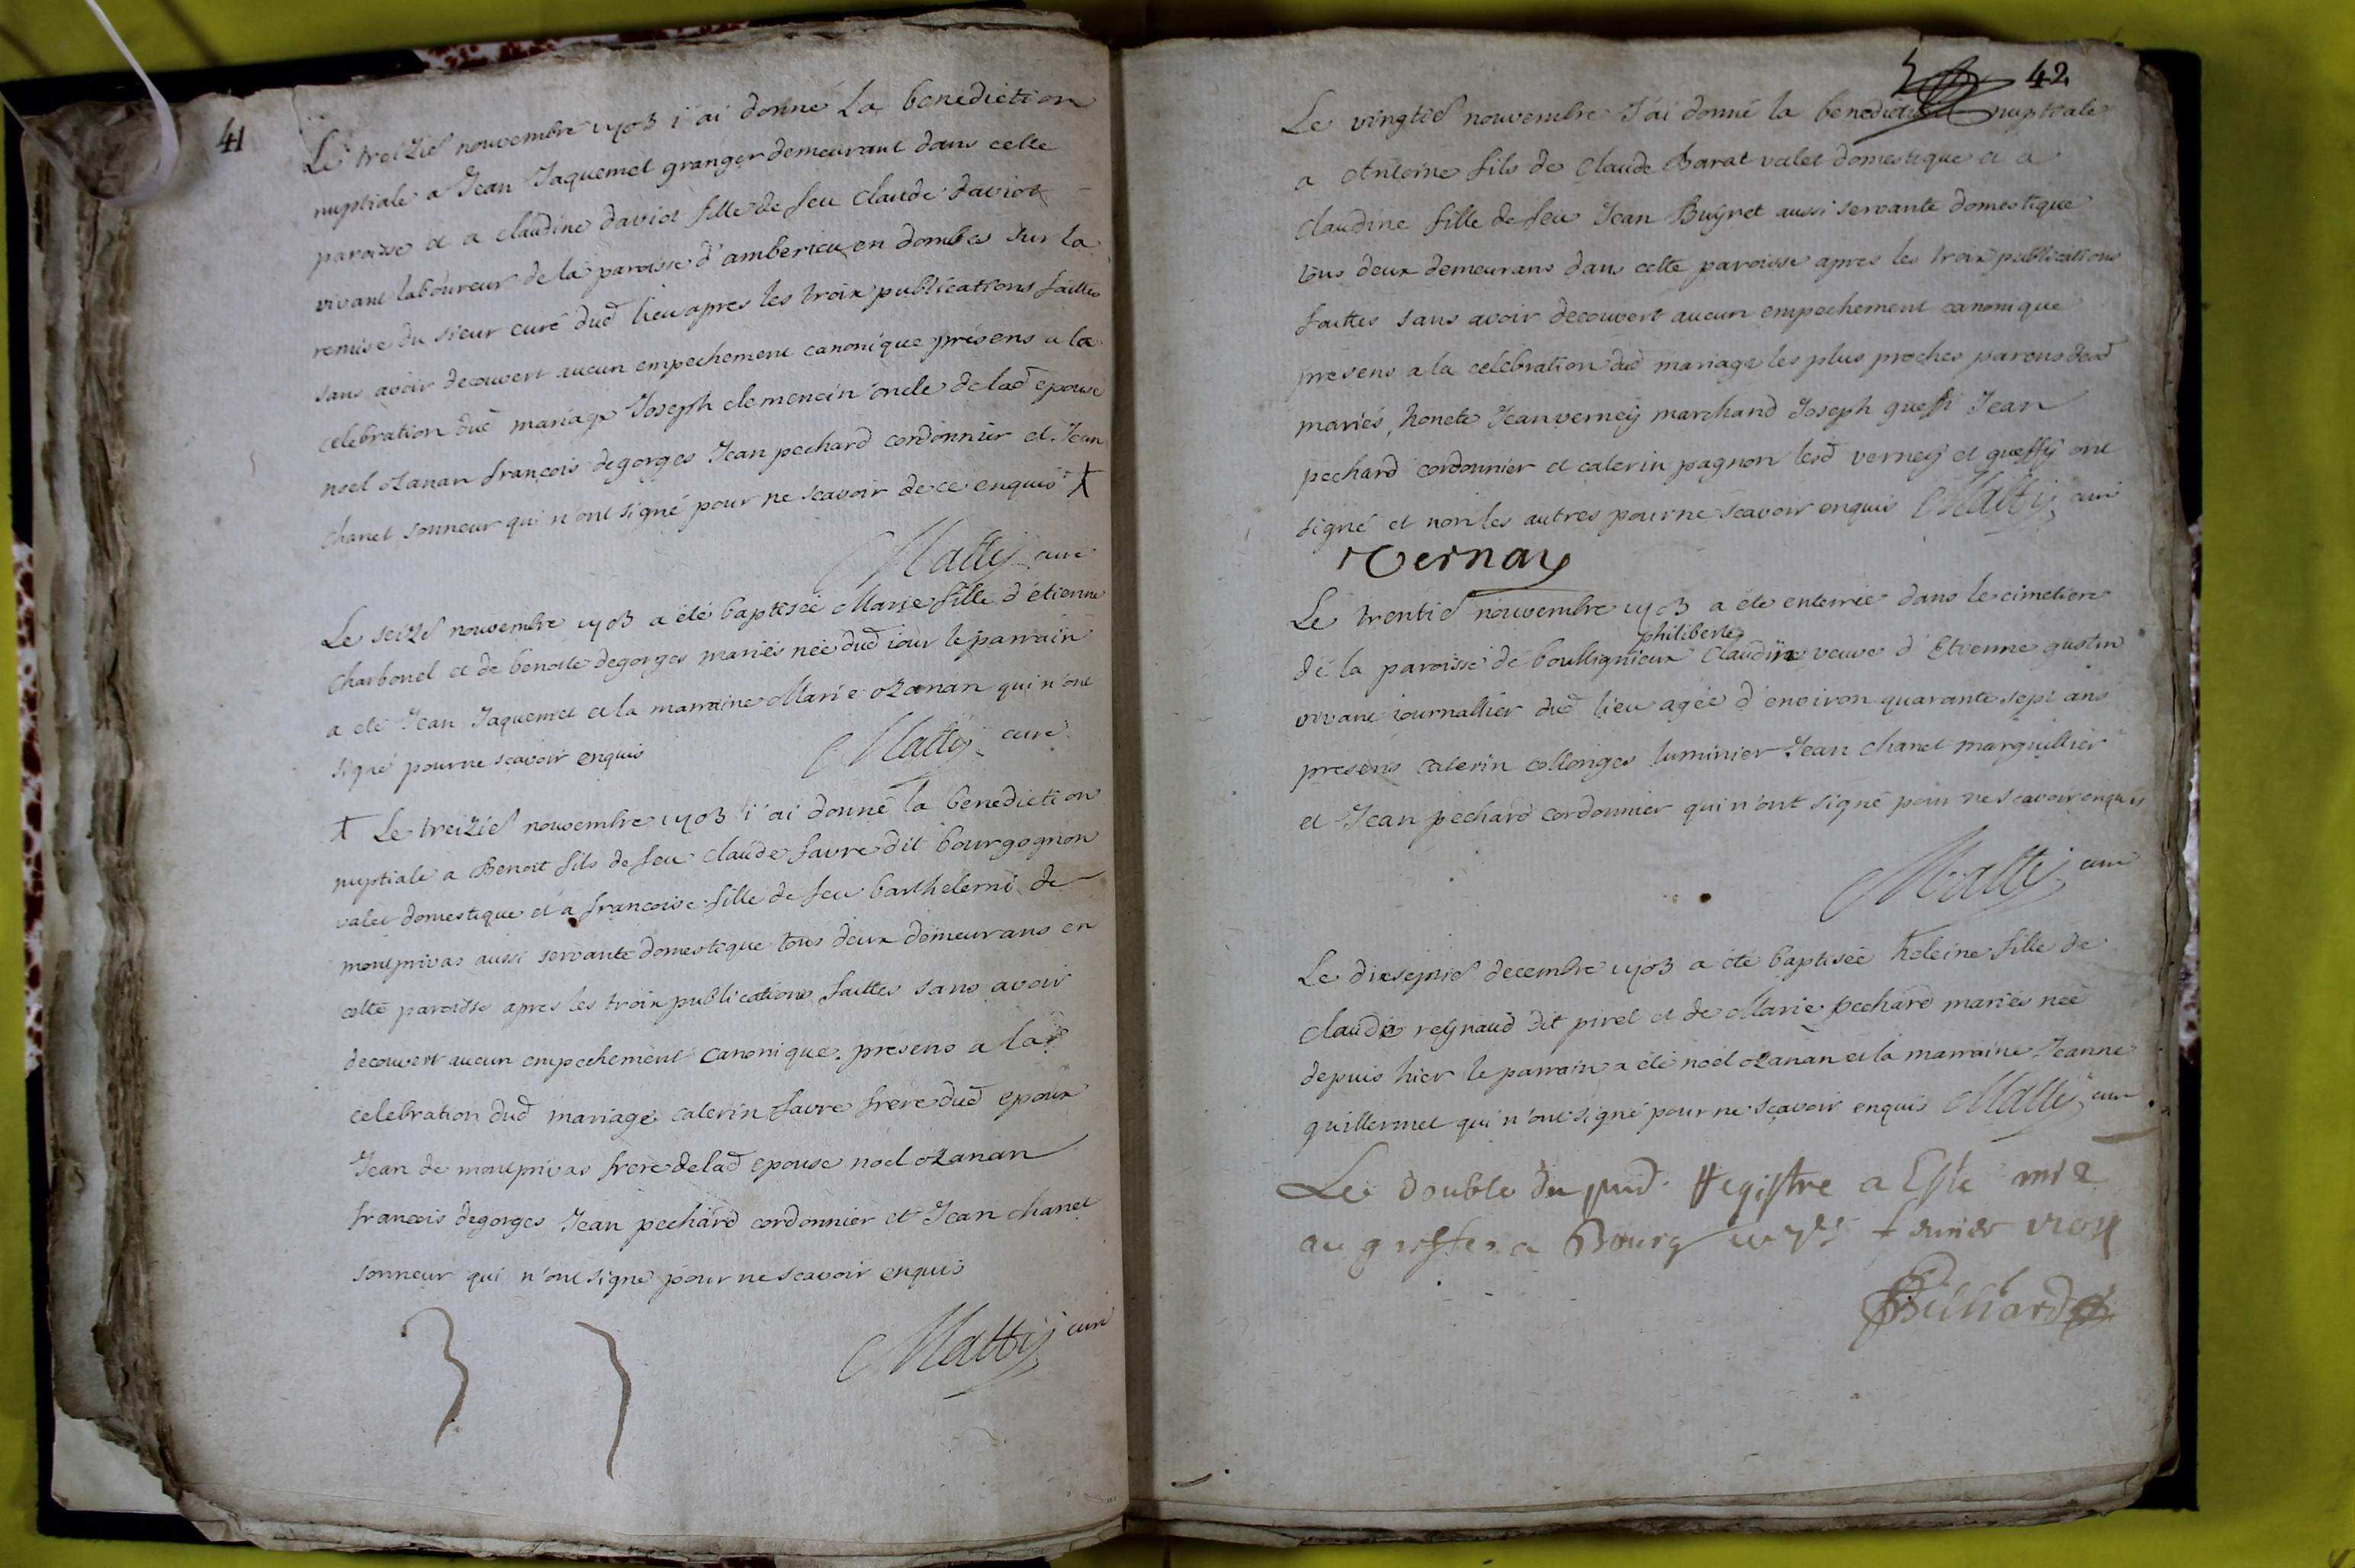 41
Le treizie nouvembre 1703 i'ai donné La benediction
nuptiale a Jean Jaquemet granger demeurant dans cette
paroisse et a claudine daviot fille de feu claude daviot
vivant laboureur de la paroisse d'amberieu en dombes sur la
remise du sieur curé dud lieu apres les troix publications faittes
sans avoir decouvert aucun empechement canonique présens a la
celebration dud mariage Joseph clemencin oncle de lad epouse
noel ozanan françois degorges Jean pechard cordonnier et Jean
chanel sonneur qui n'ont signé pour ne scavoir de ce enquis
Mattij curé
Le seizie nouvembre 1703 a été baptisée Marie fille d'étienne
charbonel et de benoite degorges mariés née dud iour le parrain
a été Jean Jaquemet et la marraine Marie ozanan qui n'ont
signé pour ne scavoir enquis Mattij curé
Le treizie nouvembre 1703 i'ai donné la benediction
nuptiale a Benoit fils de feu claude favre dit bourgognon
valet domestique et a francoise fille de feu barthelemi de
montprivas aussi servante domestique tous deux demeurans en
cette paroisse apres les troix publications faittes sans avoir
decouvert aucun empechement canonique presens a la
celebration dud mariage caterin favre frere dud epoux
Jean de montprivas frere de lad epouse noel ozanan
francois degorges Jean pechard cordonnier et Jean chanel
sonneur qui n'ont signe pour ne scavoir enquis
Mattij curé
42
Le vingtie nouvembre J'ai donné la benediction nuptiale
a Antoine fils de claude Barat valet domestique et a
claudine fille de feu Jean Buynet aussi servante domestique
tous deux demeurans dans cette paroisse apres les troix publications
faittes sans avoir decouvert aucun empechement canonique
presens a la celebration dud mariage les plus proches parens desd
mariés, honete Jean verney marchand Joseph queffi Jean
pechard cordonnier et caterin pagnon lesd verney et queffy ont
signé et non les autres pour ne scavoir enquis Mattij curé
Vernay
Le trentie nouvembre 1703 a été enterrée dans le cimetiere
philiberte
de la paroisse de boullignieux claudine veuve d'Etienne gustin
vivant iournallier dud lieu agée d'environ quarante sept ans
presens caterin collonges luminier Jean chanel marguillier
et Jean pechard cordonnier qui n'ont signé pour ne scavoir enquis
Mattij curé
Le dixseptie decembre 1703 a été baptisée heleine fille de
claude reynaud dit pirel et de Marie pechard mariés née
depuis hier le parrain a été noel ozanan et la marraine Jeanne
guillermet qui n'ont signé pour ne scavoir enquis Mattij curé
Le double du Registre a Esté mis
au greffe a Bourg